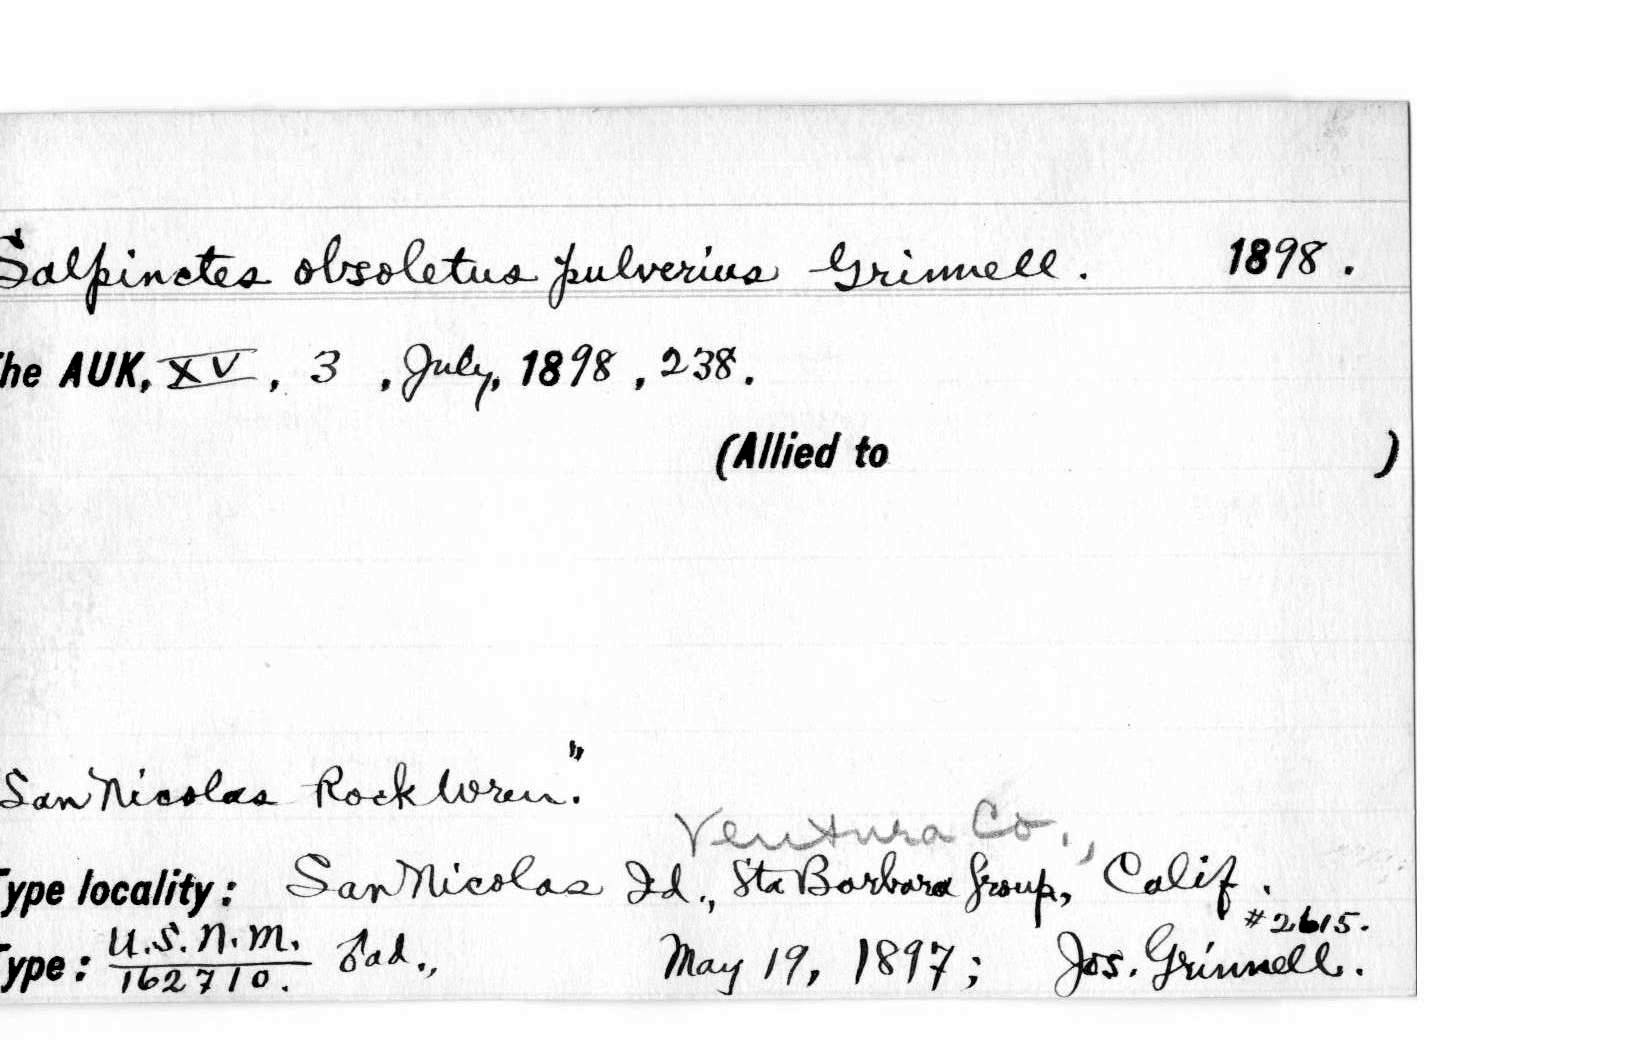 Salpinctes obsoletus pulverius Grinnell. 1898.
The AUK, XV, 3, July, 1898, 238.
(Allied to )
San Nicolas Rock Wren."
Ventura Co.,
Type locality: San Nicolas Id., Sta Barbara Group, Calif.
#2615.
Type: U.S.N.M. 162710. ♂ad., May 19, 1897; Jos. Grinnell.